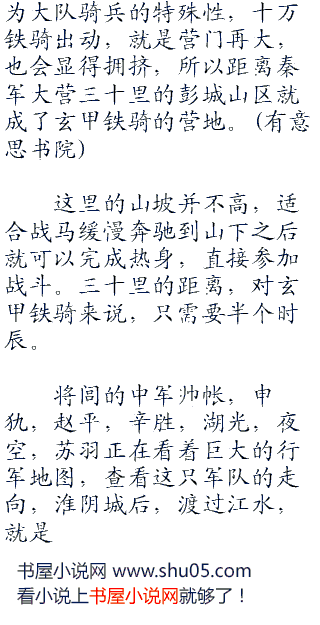 为大队骑兵的特殊性，十万
铁骑出动，就是营门再大，
也会显得拥挤，所以距离秦
军大营三十里的彭城山区就
成了玄甲铁骑的营地。(有意
思书院)
这里的山坡并不高，适
合战马缓慢奔驰到山下之后
就可以完成热身，直接参加
战斗。三十里的距离，对玄
甲铁骑来说，只需要半个时
辰。
将闾的中军帅帐，申
犰，赵平，辛胜，湖光，夜
空，苏羽正在看着巨大的行
军地图，查看这只军队的走
向，淮阴城后，渡过江水，
就是
书屋小说网 www.shu05.com
看小说上书屋小说网就够了！